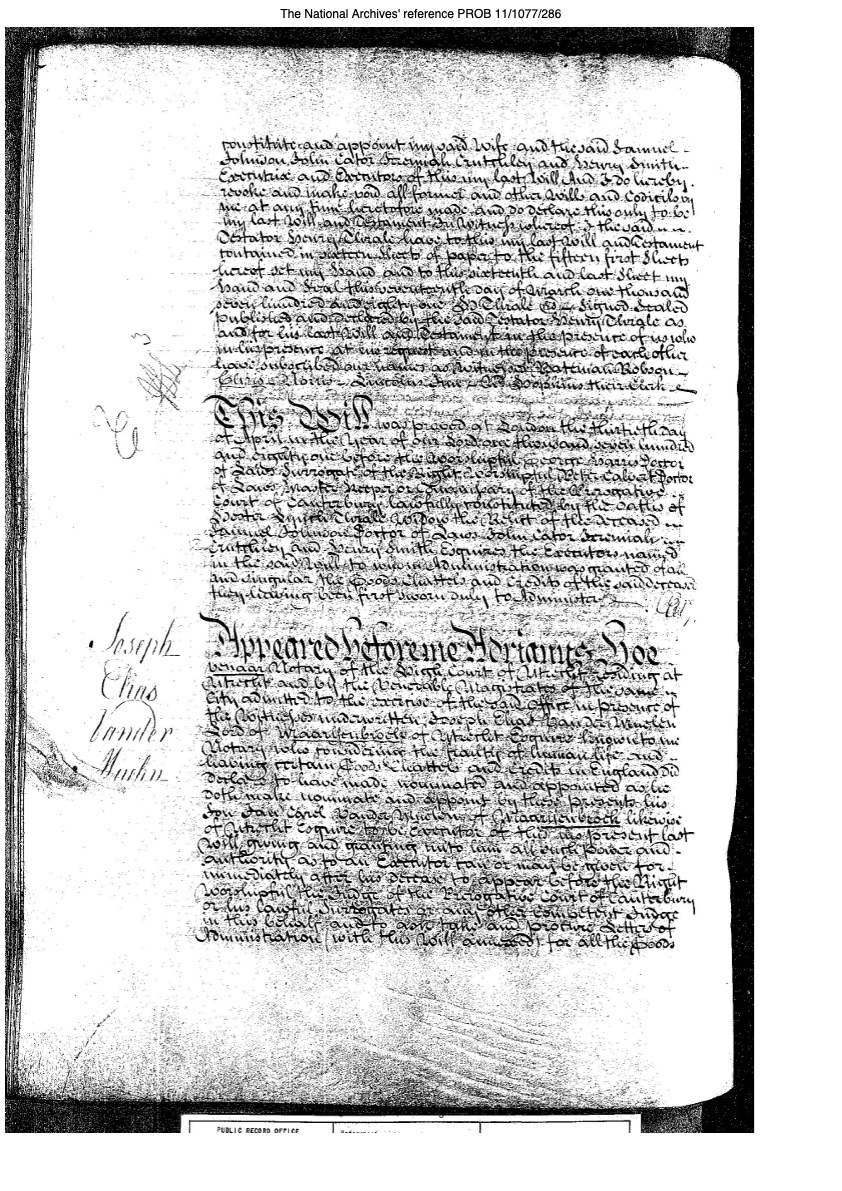 The National Archives' reference PROB 11/1077/286
constitute and appoint my said Wife and the said Samuel
Johnson John Cator Jeremiah Crutchley and Henry Smith
Executrix and Executors of this my last Will And I do hereby
revoke and make void all former and other Wills and Codicils by
me at any time heretofore made and do declare this only to be
my last Will and Testament In Witness whereof I the said
Testator Henry Thrale have to this my last Will and Testament
contained in sixteen Sheets of paper to the fifteen first Sheets
hereof set my Hand and to this sixteenth and last Sheet my
Hand and Seal this seventeenth day of March one thousand
seven hundred and eighty one H: Thrale Signed Sealed
published and declared by the said Testator Henry Thrale as
and for his last Will and Testament in the presence of us who
in his presence at his request and in the presence of each other
have subscribed our names as Witnesses Bateman Robson
Norris Lincolns Inn Hopkins their Clerk
This Will was proved at London the thirtieth day
of April in the Year of our Lord one thousand seven hundred
and eighty one before the Worshipful George Harris Doctor
of Laws Surrogate of the Right Worshipful Peter Calvert Doctor
of Laws Master Keeper or Commissary of the Prerogative
Court of Canterbury lawfully constituted by the Oaths of
Hester Lynch Thrale Widow the Relict of the deceased
Samuel Johnson Doctor of Laws John Cator Jeremiah
Crutchley and Henry Smith Esquires the Executors named
in the said Will to whom Administration was granted of all
and singular the Goods Chattels and Credits of the said deceased
they having been first sworn duly to Administer
Joseph
Elias
Vander
Muelen
Appeared before me Adrianus Hoe
venaar Notary of the High Court of Utrecht residing at
Utrecht and by the Venerable Magistrates of the same
City admitted to the exercise of the said Office in presence of
the Witnesses underwritten Joseph Elias Van der Muelen
Lord of Maarssenbroek of Utrecht Esquire known to me
Notary who considering the frailty of human life and
having certain Goods Chattels and Credits in England did
declare to have made nominated and appointed as he
doth make nominate and appoint by these presents his
Son Jan Carel Vander Muelen of Maarssenbroek likewise
of Utrecht Esquire to be Executor of this his present last
Will giving and granting unto him all such power and
authority as to an Executor can or may be given for
immediately after his decease to appear before the Right
Worshipful the Judge of the Prerogative Court of Canterbury
or his lawful Surrogates or any other competent Judge
in this behalf and to ask take and procure Letters of
Administration (with this Will annexed) for all the Goods
PUBLIC RECORD OFFICE